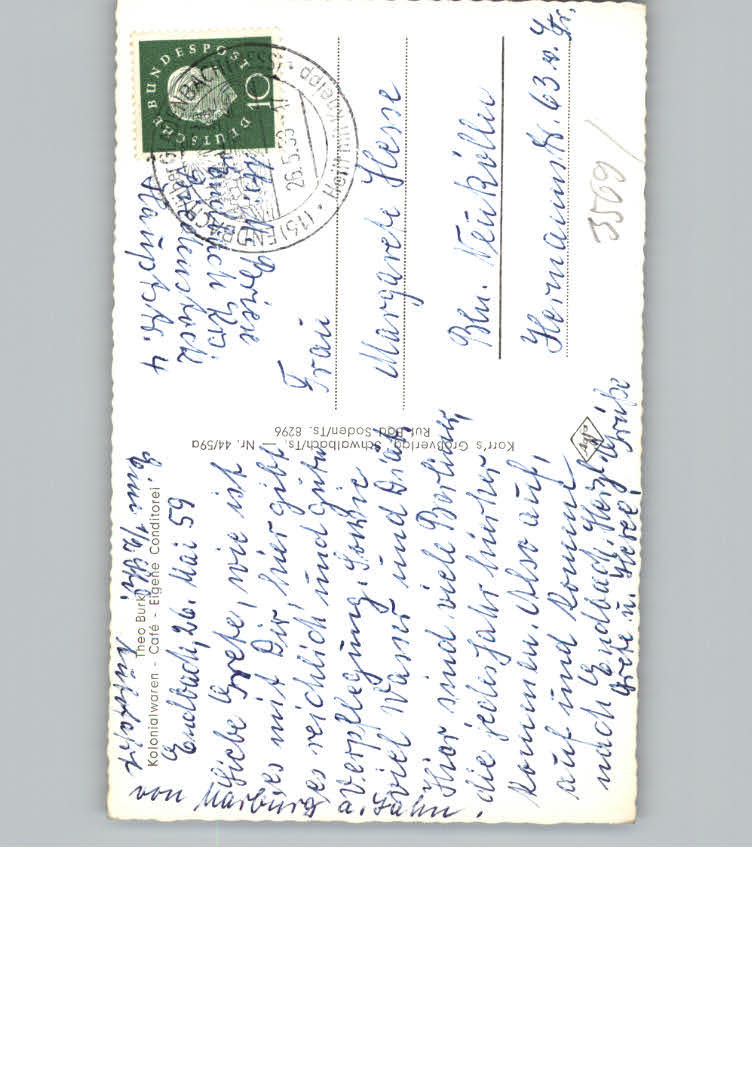 Theo Burk
Kolonialwaren - Café - Eigene Conditorei
Endbach, 26. Mai 59
Liebe Grete, wie ist
es mit Dir, hier gibt
es reichlich und gute
Verpflegung, sowie
viel Wasser und
Hier sind viele Berliner,
die jedes Jahr hierher
kommen. Also auf,
auf und komme
nach Endbach. Herzl. Grüße
Grete u.
Eine 1/2 Std.
von Marburg a. Lahn.
Korr's Großverlag, Schwalbach/Ts. — Nr. 44/59a
Ruf Bad Soden/Ts. 8296
Agfa
DEUTSCHE BUNDESPOST
10
(15) ENDBACH
26.5.59
heilt mit Kneipp
Hauptstr. 4
Frau
Margarete Hesse
Bln. Neukölln
Hermannstr. 63 v. Tr.
3569/